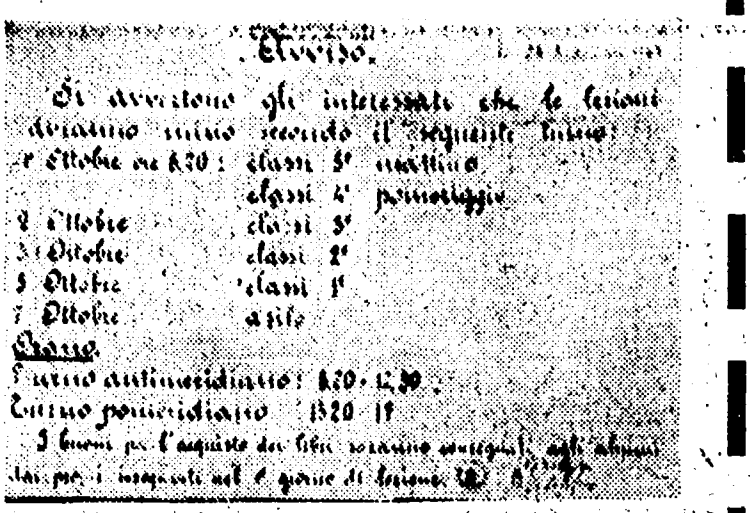 Avviso.
Si avvertono gli interessati che le lezioni
avranno inizio secondo il seguente turno:
1° Ottobre ore 8.20: classi 5ª mattino
classi 4ª pomeriggio
2 Ottobre classi 3ª
3 Ottobre classi 2ª
5 Ottobre classi 1ª
7 Ottobre asilo
Orario.
Turno antimeridiano: 8.20-12,30
Turno pomeridiano 13.20 19
I buoni per l'acquisto dei libri saranno consegnati agli alunni
dai propri insegnanti nel 1° giorno di lezione.